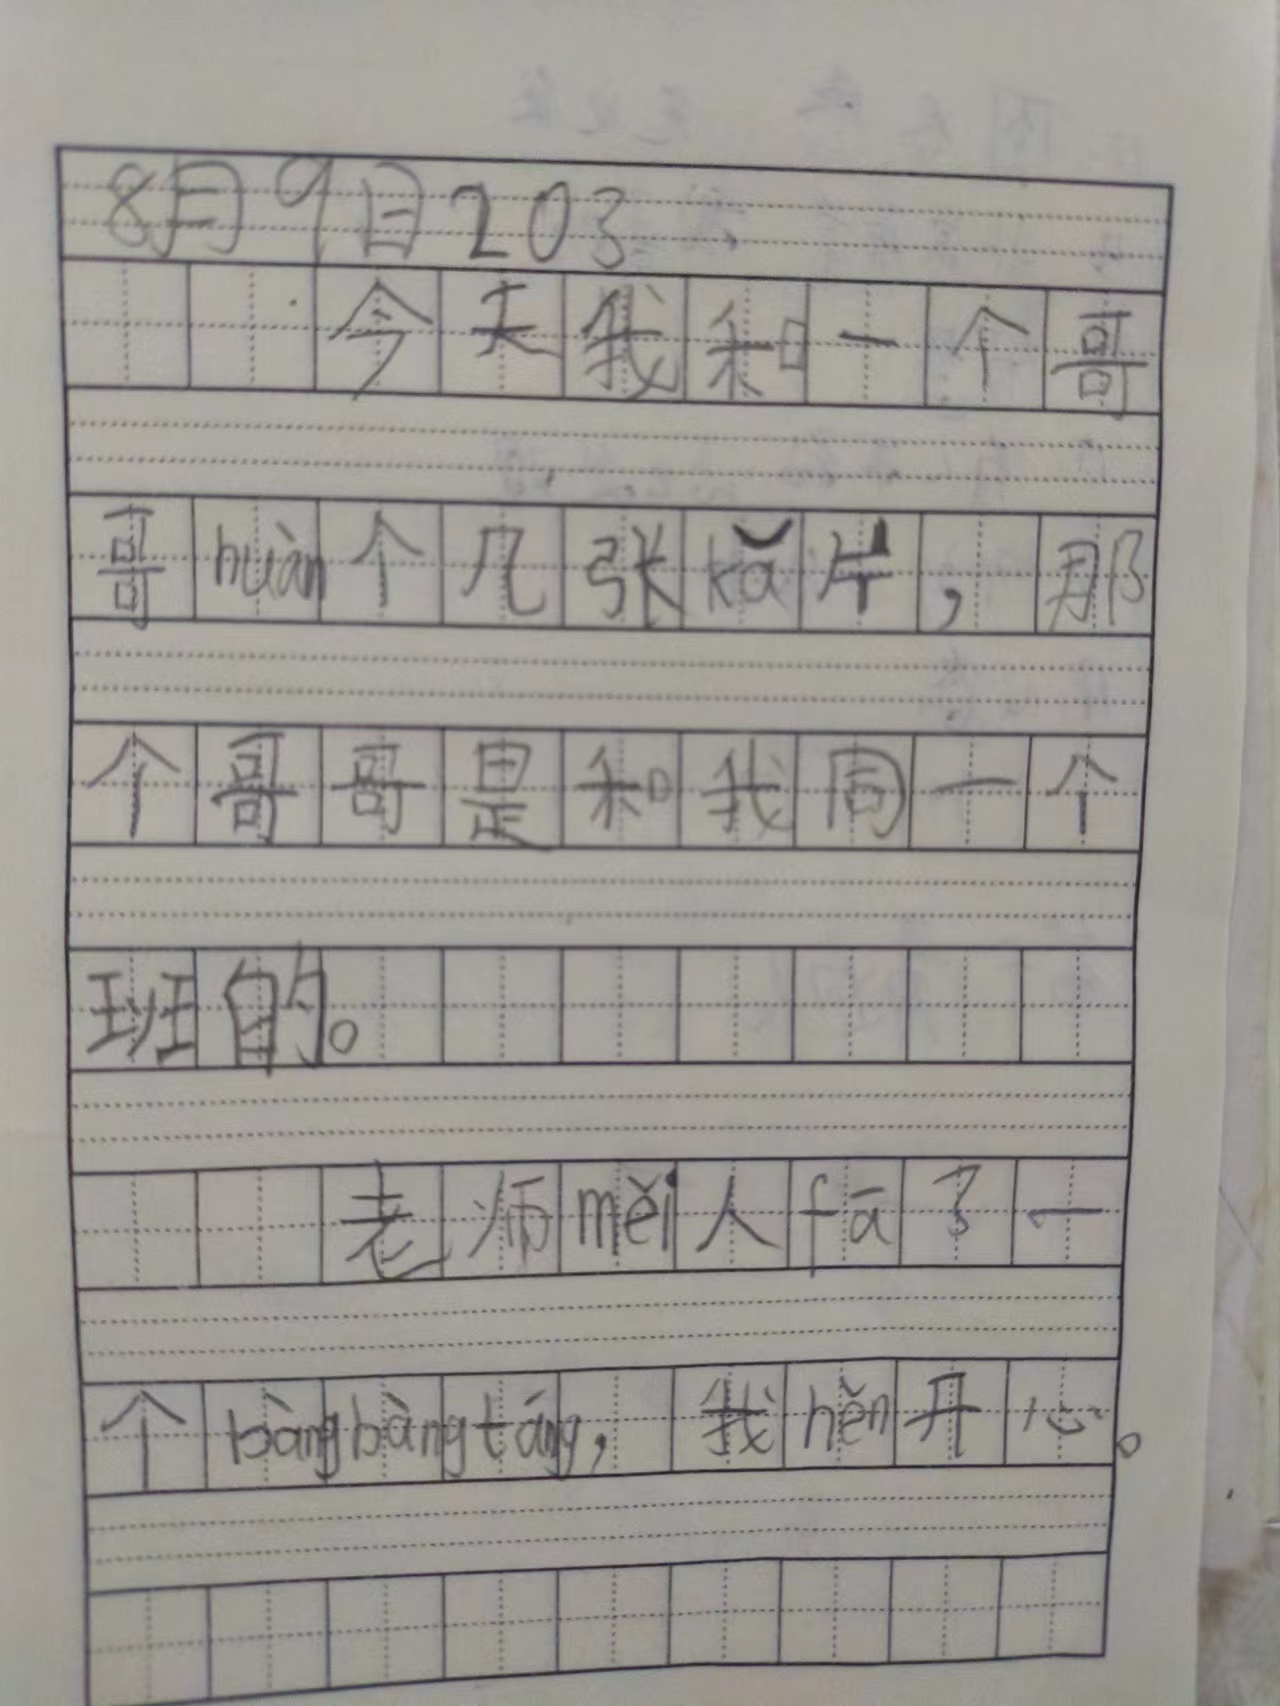 8月9日203
今天我和一个哥
哥huàn个几张kǎ片，那
个哥哥是和我同一个
班的。
老师měi人fā了一
个bàngbàngtáng，我hěn开心。